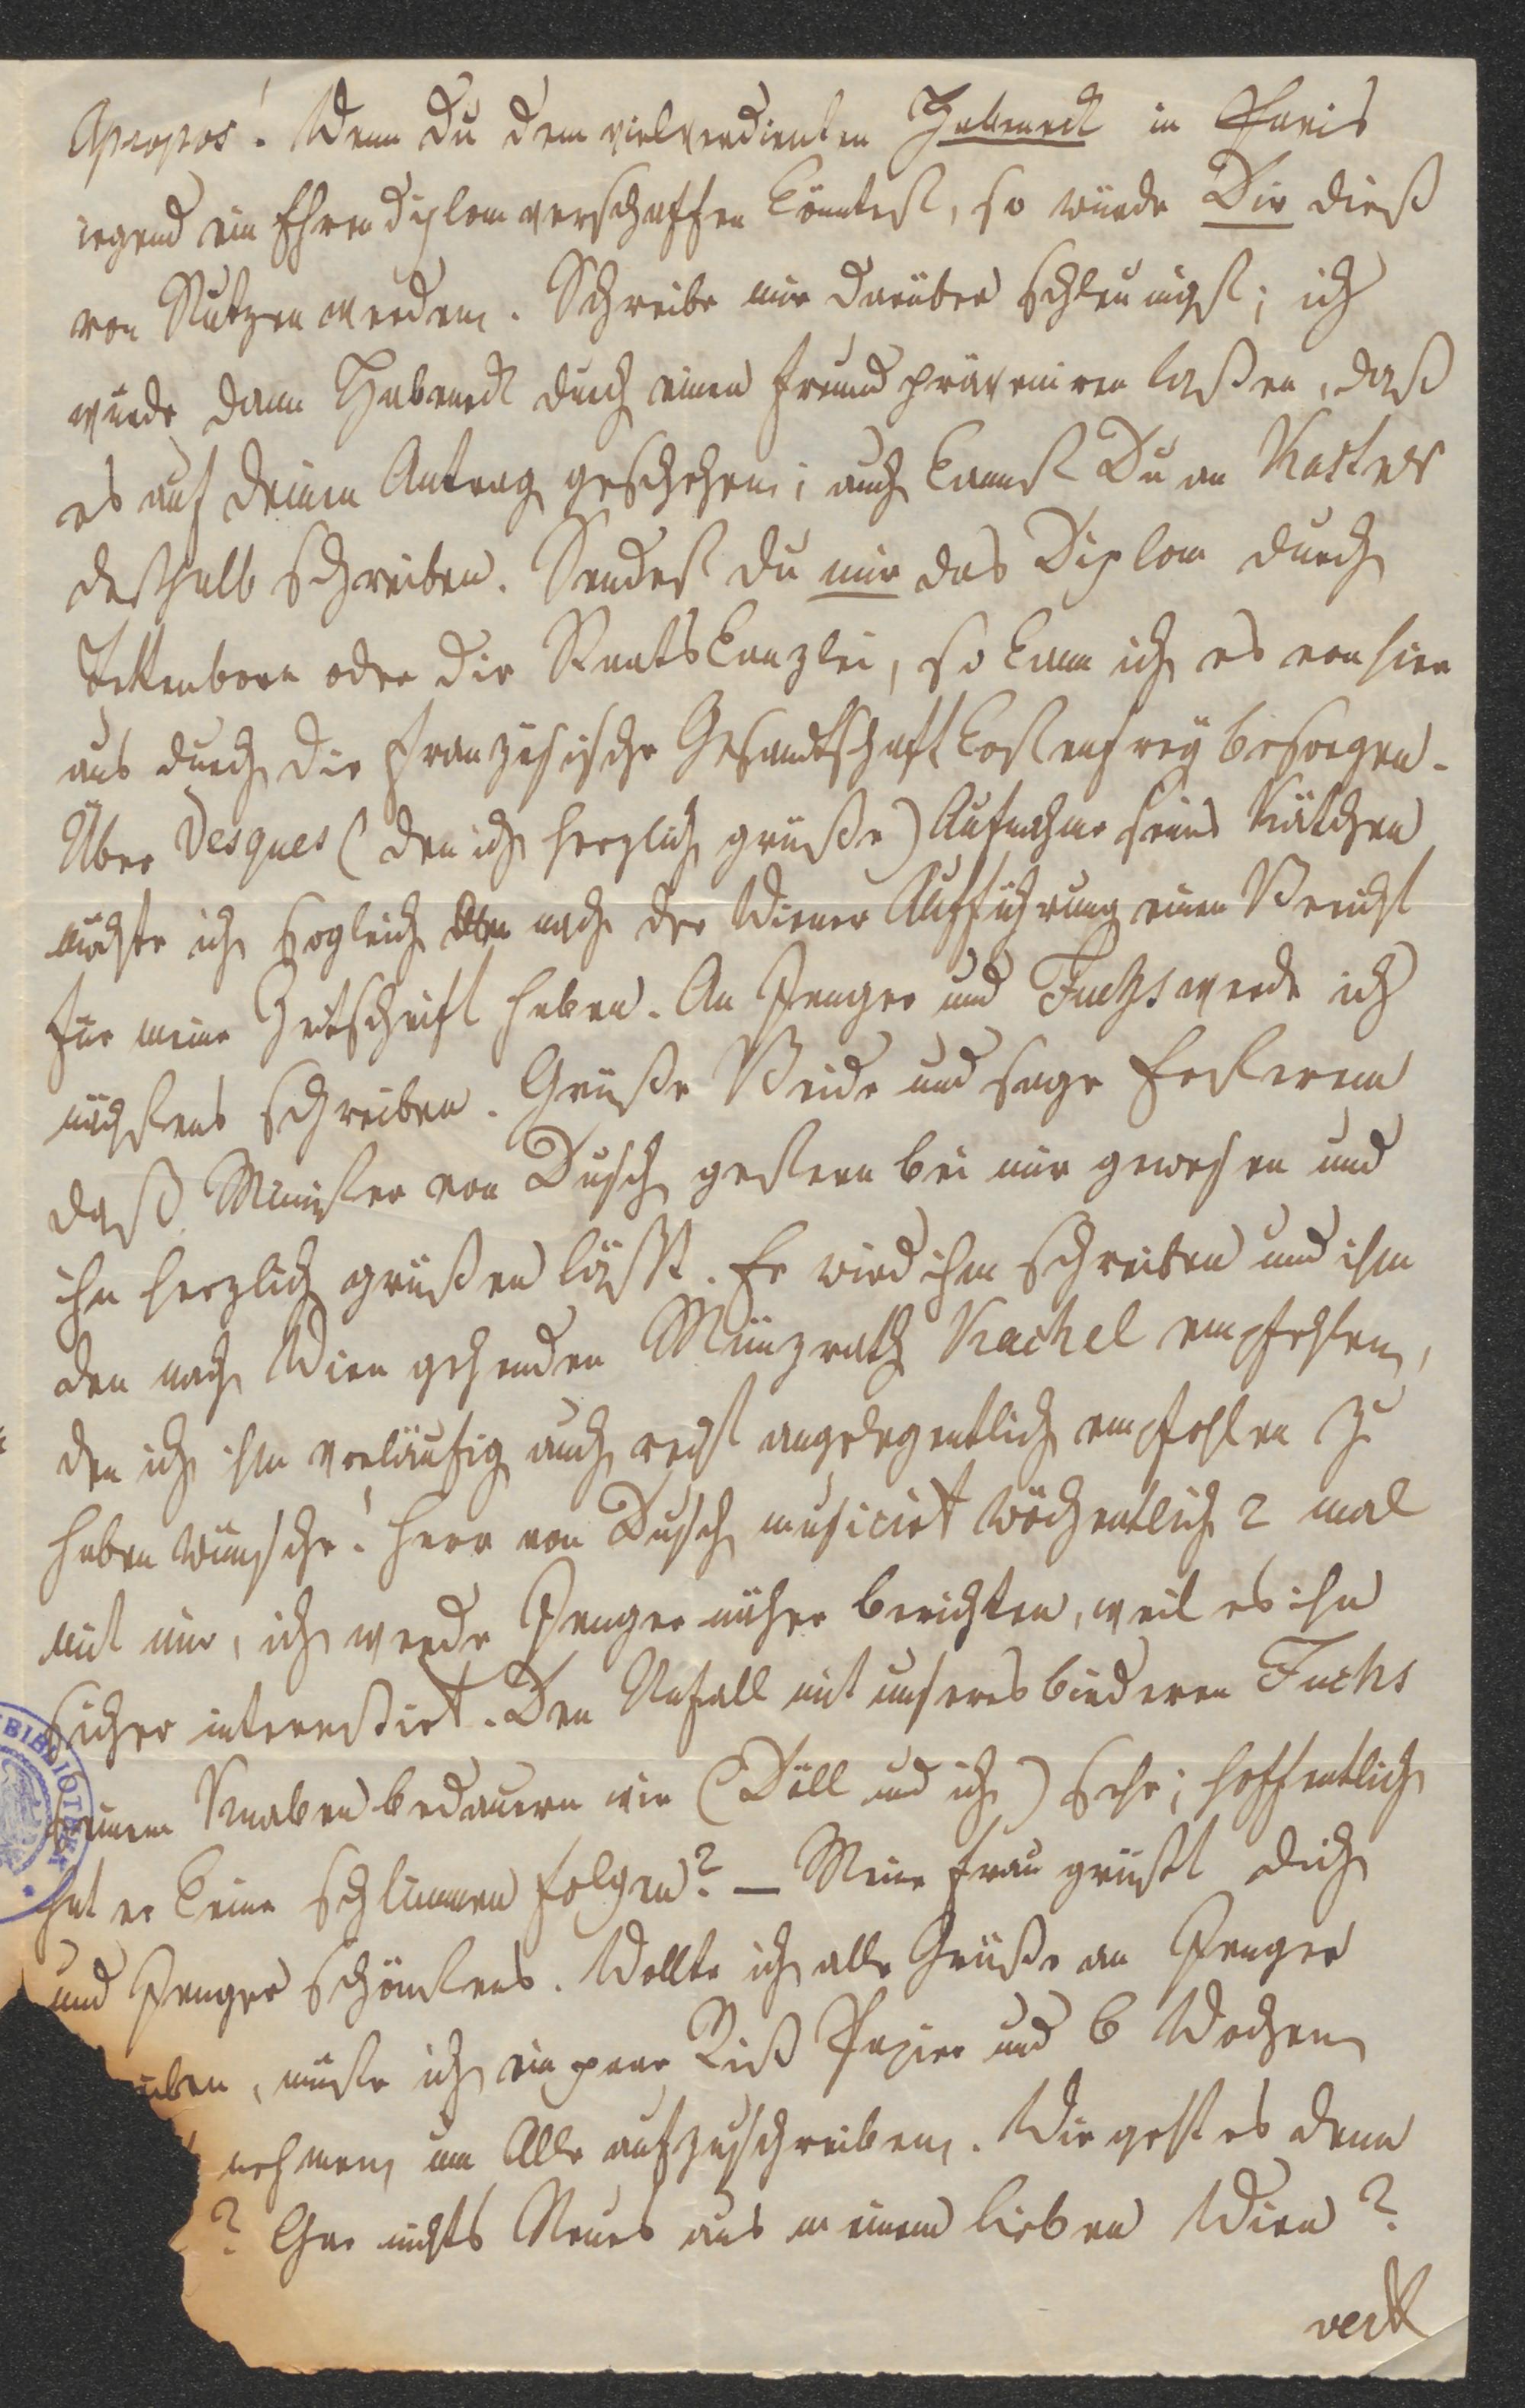 Apropos! Wenn Du dem vielverdienten Habeneck in Paris
irgend ein Ehrendiplom verschaffen könntest, so würde Dir dieß
von Nutzen werden. Schreibe mir darüber schleunigst; ich
würde dann Habeneck durch einen Freund präveniren laßen, daß
es auf Deinen Antrag geschehen; auch kannst Du an Kastner
deßhalb schreiben. Sendest du mir das Diplom durch
Tettenborn oder die Staatskanzlei, so kann ich es von hier
aus durch die französische Gesandtschaft kostenfrey besorgen.
Über Vesques (den ich herzlich grüße) Aufnahme seines Kätchen
möchte ich sogleich nach der Wiener Aufführung einen Bericht
für meine Zeitschrift haben. An Prenger und Fuchs werde ich
nächstens schreiben. Grüße Beide und sage Ersterem
daß Minister von Dusch gestern bei mir gewesen und
ihn herzlich grüßen läßt. Er wird ihm schreiben und ihm
den nach Wien gehenden Münzrath Kachel empfehlen,
den ich ihm vorläufig auch recht angelegentlich empfohlen zu
haben wünsche! Herr von Dusch musicirt wöchentlich 2 mal
mit mir, ich werde Prenger näher berichten, weil es ihn
sicher interessirt. Den Unfall mit unseres biederen Fuchs
seinem Knaben bedauern wir (Döll und ich) sehr; hoffentlich
hat er keine schlimmen Folgen? — Meine Frau grüßt dich
und Prenger schönstens. Wollte ich alle Grüße an Prenger
, müßte ich ein paar Riß Papier und 6 Wochen
nehmen, um Alle aufzuschreiben. Wie geht es denn
? Gar nichts Neues aus meinem lieben Wien?
vert